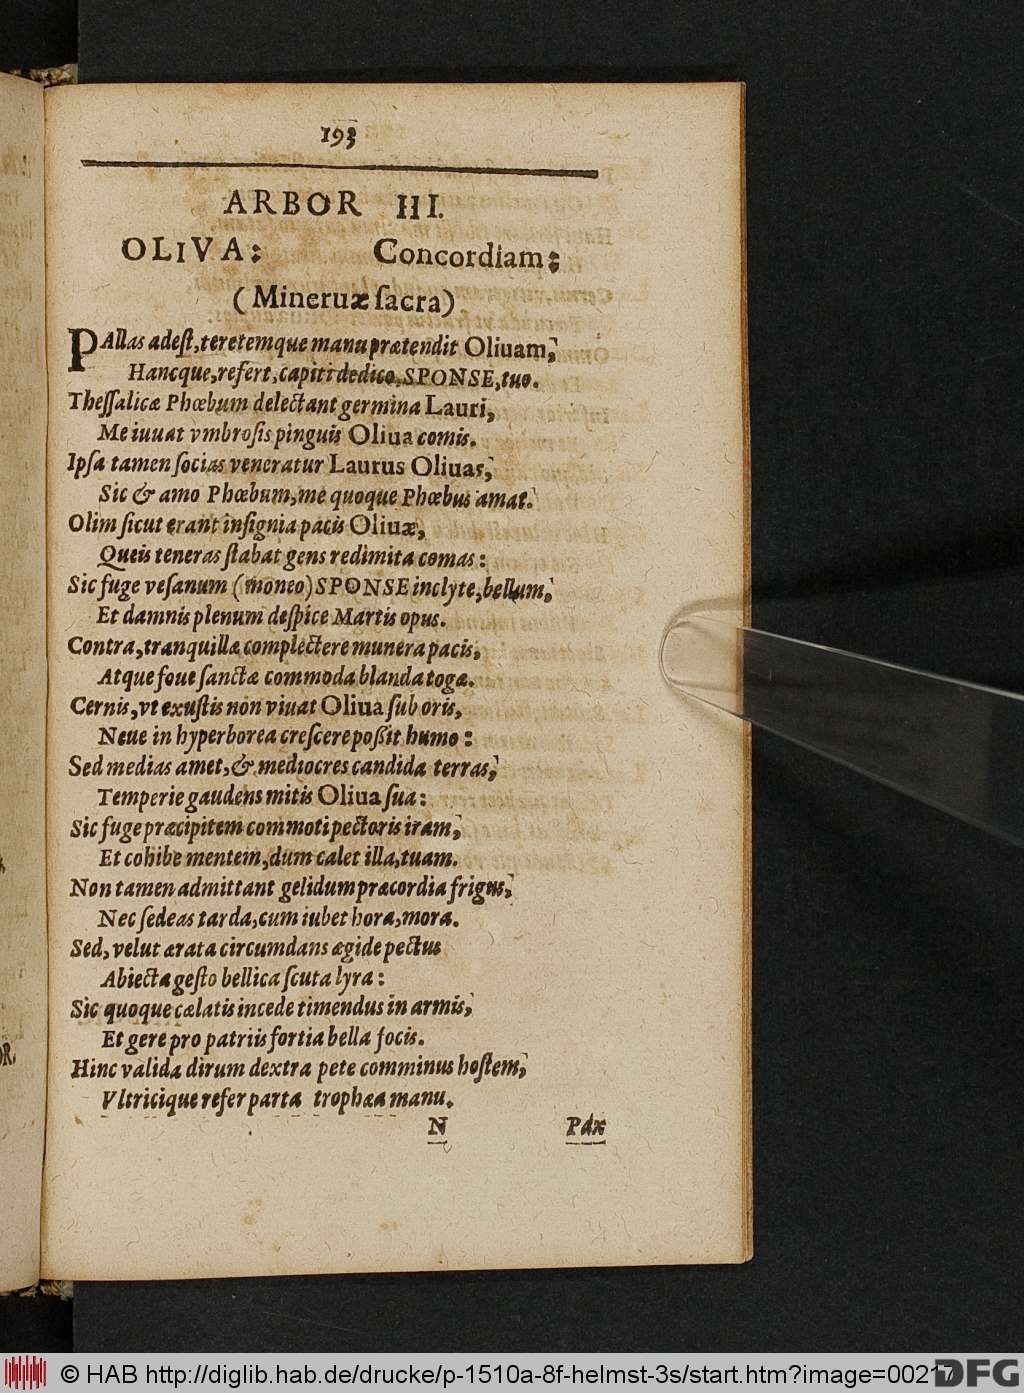 193
ARBOR III.
OLIVA: Concordiam:
(Mineruæ sacra)
PAllas adest, teretemque manu prætendit Oliuam,
Hancque, refert, capiti dedico, SPONSE, tuo.
Thessalicæ Phœbum delectant germina Lauri,
Me iuuat vmbrosis pinguis Oliua comis.
Ipsa tamen socias veneratur Laurus Oliuas,
Sic & amo Phœbum, me quoque Phœbus amat.
Olim sicut erant insignia pacis Oliuæ,
Queis teneras stabat gens redimita comas:
Sic fuge vesanum (moneo) SPONSE inclyte, bellum,
Et damnis plenum despice Martis opus.
Contra, tranquillæ complectere munera pacis,
Atque foue sanctæ commoda blanda togæ.
Cernis, vt exustis non viuat Oliua sub oris,
Neue in hyperborea crescere poßit humo:
Sed medias amet, & mediocres candida terras,
Temperie gaudens mitis Oliua sua:
Sic fuge præcipitem commoti pectoris iram,
Et cohibe mentem, dum calet illa, tuam.
Non tamen admittant gelidum præcordia frigus,
Nec sedeas tarda, cum iubet hora, mora.
Sed, velut ærata circumdans ægide pectus
Abiecta gesto bellica scuta lyra:
Sic quoque cælatis incede timendus in armis,
Et gere pro patriis fortia bella focis.
Hinc valida dirum dextra pete comminus hostem,
Vltricique refer parta trophæa manu.
N Pax
© HAB http://diglib.hab.de/drucke/p-1510a-8f-helmst-3s/start.htm?image=00217
DFG